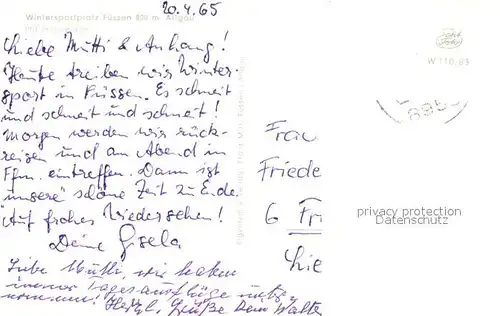 20.4.65
Wintersportplatz Füssen 800 m Allgäu
Liebe Mutti & Anhang!
Heute treiben wir Winter-
sport in Füssen. Es schneit
und schneit und schneit!
Morgen werden wir rück-
reisen und am Abend in
Ffm. eintreffen. Dann ist
"unsere" schöne Zeit zu Ende.
Auf frohes Wiedersehen!
Deine Gisela
Liebe Mutti, wir haben
immer Tagesausflüge
Herzl. Grüße Dein Walter
W 110/83
Frau
Friede
6 Fr
privacy protection
Datenschutz